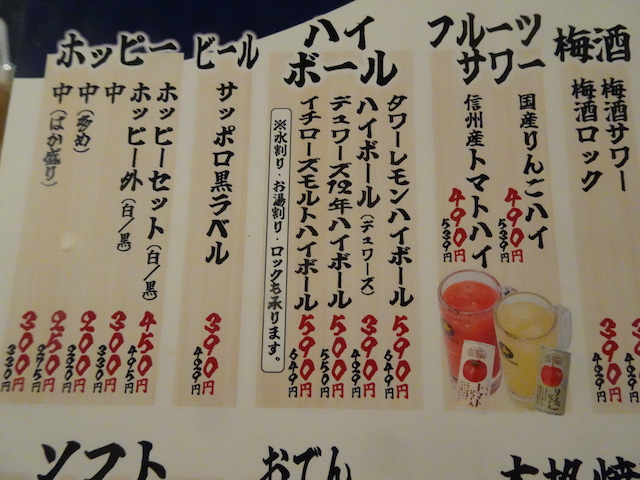 梅酒
梅酒サワー
390円
429円
梅酒ロック
390円
フルーツサワー
国産りんごハイ
490円
539円
信州産トマトハイ
490円
539円
ハイボール
タワーレモンハイボール
590円
649円
ハイボール(デュワーズ)
390円
429円
デュワーズ12年ハイボール
500円
550円
イチローズモルトハイボール
590円
649円
※水割り・お湯割り・ロックも承ります。
ビール
サッポロ黒ラベル
390円
429円
ホッピー
ホッピーセット(白/黒)
450円
495円
ホッピー外(白/黒)
300円
330円
中
200円
220円
中(多め)
250円
275円
中(ばか盛り)
300円
330円
ソフト
おでん